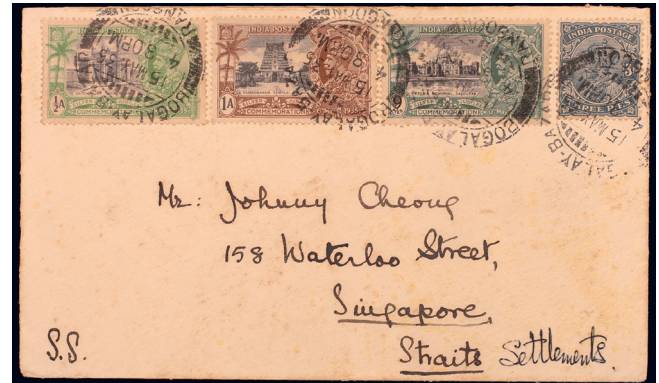 INDIA POSTAGE
½A
SILVER JUBILEE
COMMEMORATION
INDIA POSTAGE
1A
SILVER JUBILEE
COMMEMORATION
INDIA POSTAGE
SILVER JUBILEE
COMMEMORATION
INDIA POSTAGE
THREE PIES
BOGALAY-BAZAR
RANGOON
15 MAY 35
Mr: Johnny Cheong
158 Waterloo Street,
Singapore,
S.S.
Straits Settlements.